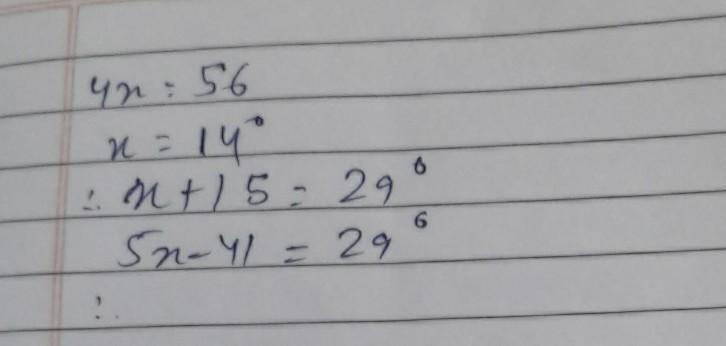 4x = 56
x = 14°
∴ x + 15 = 29°
5x - 41 = 29°
∴